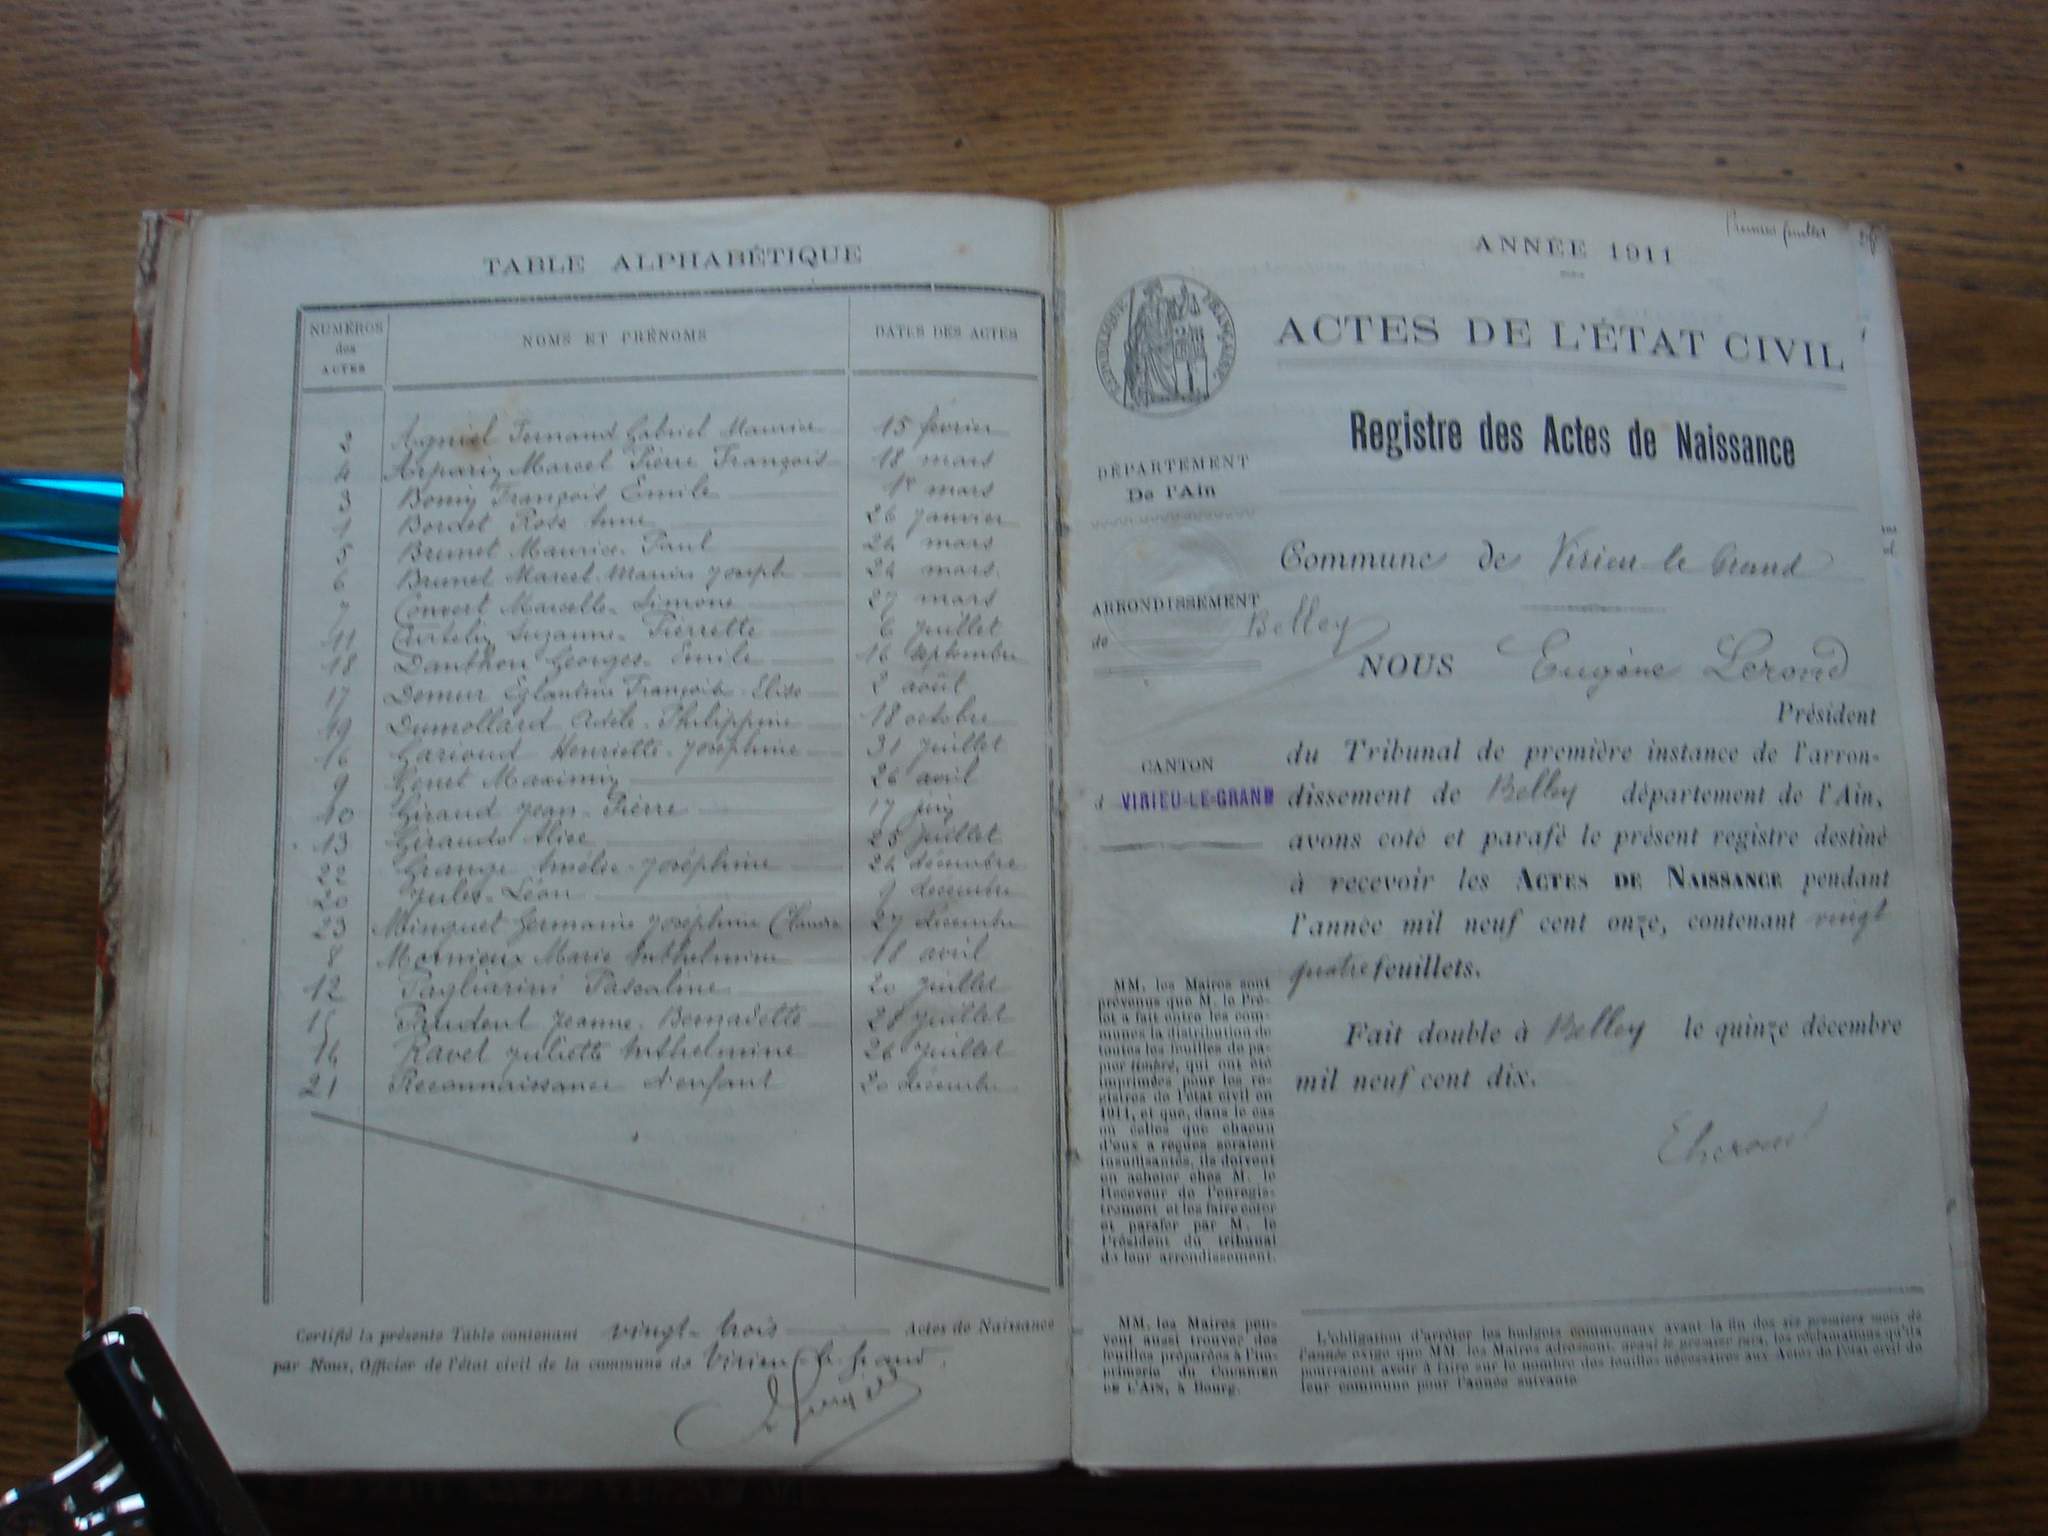 TABLE ALPHABÉTIQUE
NUMÉROS des ACTES NOMS ET PRÉNOMS DATES DES ACTES
2 Agniel Fernand Gabriel Maurice 15 février
4 Arpariz Marcel Pierre François 18 mars
3 François Emile 1er mars
1 Bordet Rose Anne 26 janvier
5 Brunet Maurice Paul 24 mars
6 Brunet Marcel Marius Joseph 24 mars
7 Convert Marcelle Simone 27 mars
11 Suzanne Pierrette 6 juillet
18 Danthon Georges Emile 16 septembre
17 Demeur Eglantine Françoise Elise 2 août
19 Dumollard Adèle Philippine 18 octobre
16 Garioud Henriette Joséphine 31 juillet
9 Genet Maximin 26 avril
10 Giraud Jean Pierre 17 juin
13 Giraudo Alice 25 juillet
22 Grange Amélie Joséphine 24 décembre
20 Jules Léon 9 décembre
23 Minguet Germaine Joséphine Claudia 27 décembre
8 Mornieux Marie Anthelmine 18 avril
12 Pagliarini Pascaline 20 juillet
15 Prudent Jeanne Bernadette 28 juillet
14 Ravet Juliette Anthelmine 26 juillet
21 Reconnaissance d'enfant 20 décembre
Certifié la présente Table contenant vingt-trois Actes de Naissance
par Nous, Officier de l'état civil de la commune de Virieu-le-Grand.
Premier feuillet
ANNÉE 1911
RÉPUBLIQUE FRANÇAISE
ACTES DE L'ÉTAT CIVIL
Registre des Actes de Naissance
DÉPARTEMENT
De l'Ain
Commune de Virieu-le-Grand
ARRONDISSEMENT
de Belley
NOUS Eugène Lerond
Président
du Tribunal de première instance de l'arron-
CANTON
d VIRIEU-LE-GRAND
dissement de Belley département de l'Ain,
avons coté et parafé le présent registre destiné
à recevoir les ACTES DE NAISSANCE pendant
l'année mil neuf cent onze, contenant vingt
quatre feuillets.
Fait double à Belley le quinze décembre
mil neuf cent dix.
MM. les Maires sont
prévenus que M. le Pré-
fet a fait entre les com-
munes la distribution de
toutes les feuilles de pa-
pier timbré, qui ont été
imprimées pour les re-
gistres de l'état civil en
1911, et que, dans le cas
où celles que chacun
d'eux a reçues seraient
insuffisantes, ils doivent
en acheter chez M. le
Receveur de l'enregis-
trement et les faire coter
et parafer par M. le
Président du tribunal
de leur arrondissement.
MM. les Maires peu-
vent aussi trouver des
feuilles préparées à l'im-
primerie du COURRIER
DE L'AIN, à Bourg.
L'obligation d'arrêter les budgets communaux avant la fin des six premiers mois de
l'année exige que MM. les Maires adressent, avant le premier juin, les réclamations qu'ils
pourraient avoir à faire sur le nombre des feuilles nécessaires aux Actes de l'état civil de
leur commune pour l'année suivante.